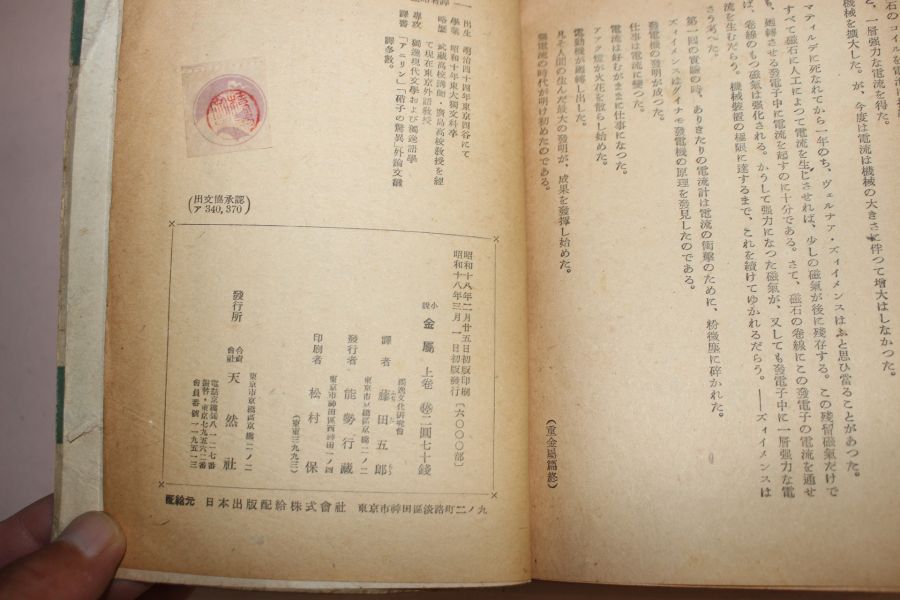 石のコイルを電流は
と、一層強力な電流を得た。
機械を擴大した。が、今度は電流は機械の大きさに伴つて増大はしなかつた。
マティルデに死なれてから一年のち、ヴェルナア・ズィイメンスはふと思ひ當ることがあつた。
すべて磁石に人工によつて電流を生じさせれば、少しの磁氣が後に殘存する。この殘留磁氣だけで
も、廻轉させる發電子中に電流を起すのに十分である。さて、磁石の卷線にこの發電子の電流を通せ
ば、卷線のもつ磁氣は强化される。かうして强力になつた磁氣が、又しても發電子中に一層强力な電
流を生むだらう。機械裝置の極限に達するまで、これを續けてゆかれるだらう。——ズィイメンスは
さう考へた。
第一回の實驗の時、ありきたりの電流計は電流の衝擊のために、粉微塵に碎かれた。
ズィイメンスはダイナモ發電機の原理を發見したのである。
發電機の發明が成つた。
仕事は電流に變つた。
電流は好むがままに仕事になつた。
アアク燈が火花を散らし始めた。
電動機が廻轉し出した。
凡そ人間の生んだ最大の發明が、成果を發揮し始めた。
强電流の時代が明け初めたのである。
(重金屬篇終)
出生 明治四十四年東京四谷にて
學業 昭和十年東大獨文科卒
略歷 武藏高校講師・廣島高校敎授を經
て現在東京外語敎授
專攻 獨逸現代文學および獨逸語學
譯書 「アニリン」「硝子の驚異」外論文飜
譯多數。
(出文協承認
ア 340,370)
昭和十八年二月廿五日初版印刷
昭和十八年三月 一日初版發行 (六〇〇〇部)
小說 金屬 上卷 ㊞二圓七十錢
獨逸文化硏究會
譯者 藤田五郎
東京市京橋區京橋二ノ二
發行者 能勢行藏
東京市神田區西神田一ノ四
印刷者 松村 保
(東東三九九三)
東京市京橋區京橋二ノ二
發行所 合資會社 天然社
電話京橋(56)八一二七番
振替・東京七九五六二番
會員番號一一九五一三
配給元 日本出版配給株式會社 東京市神田區淡路町二ノ九